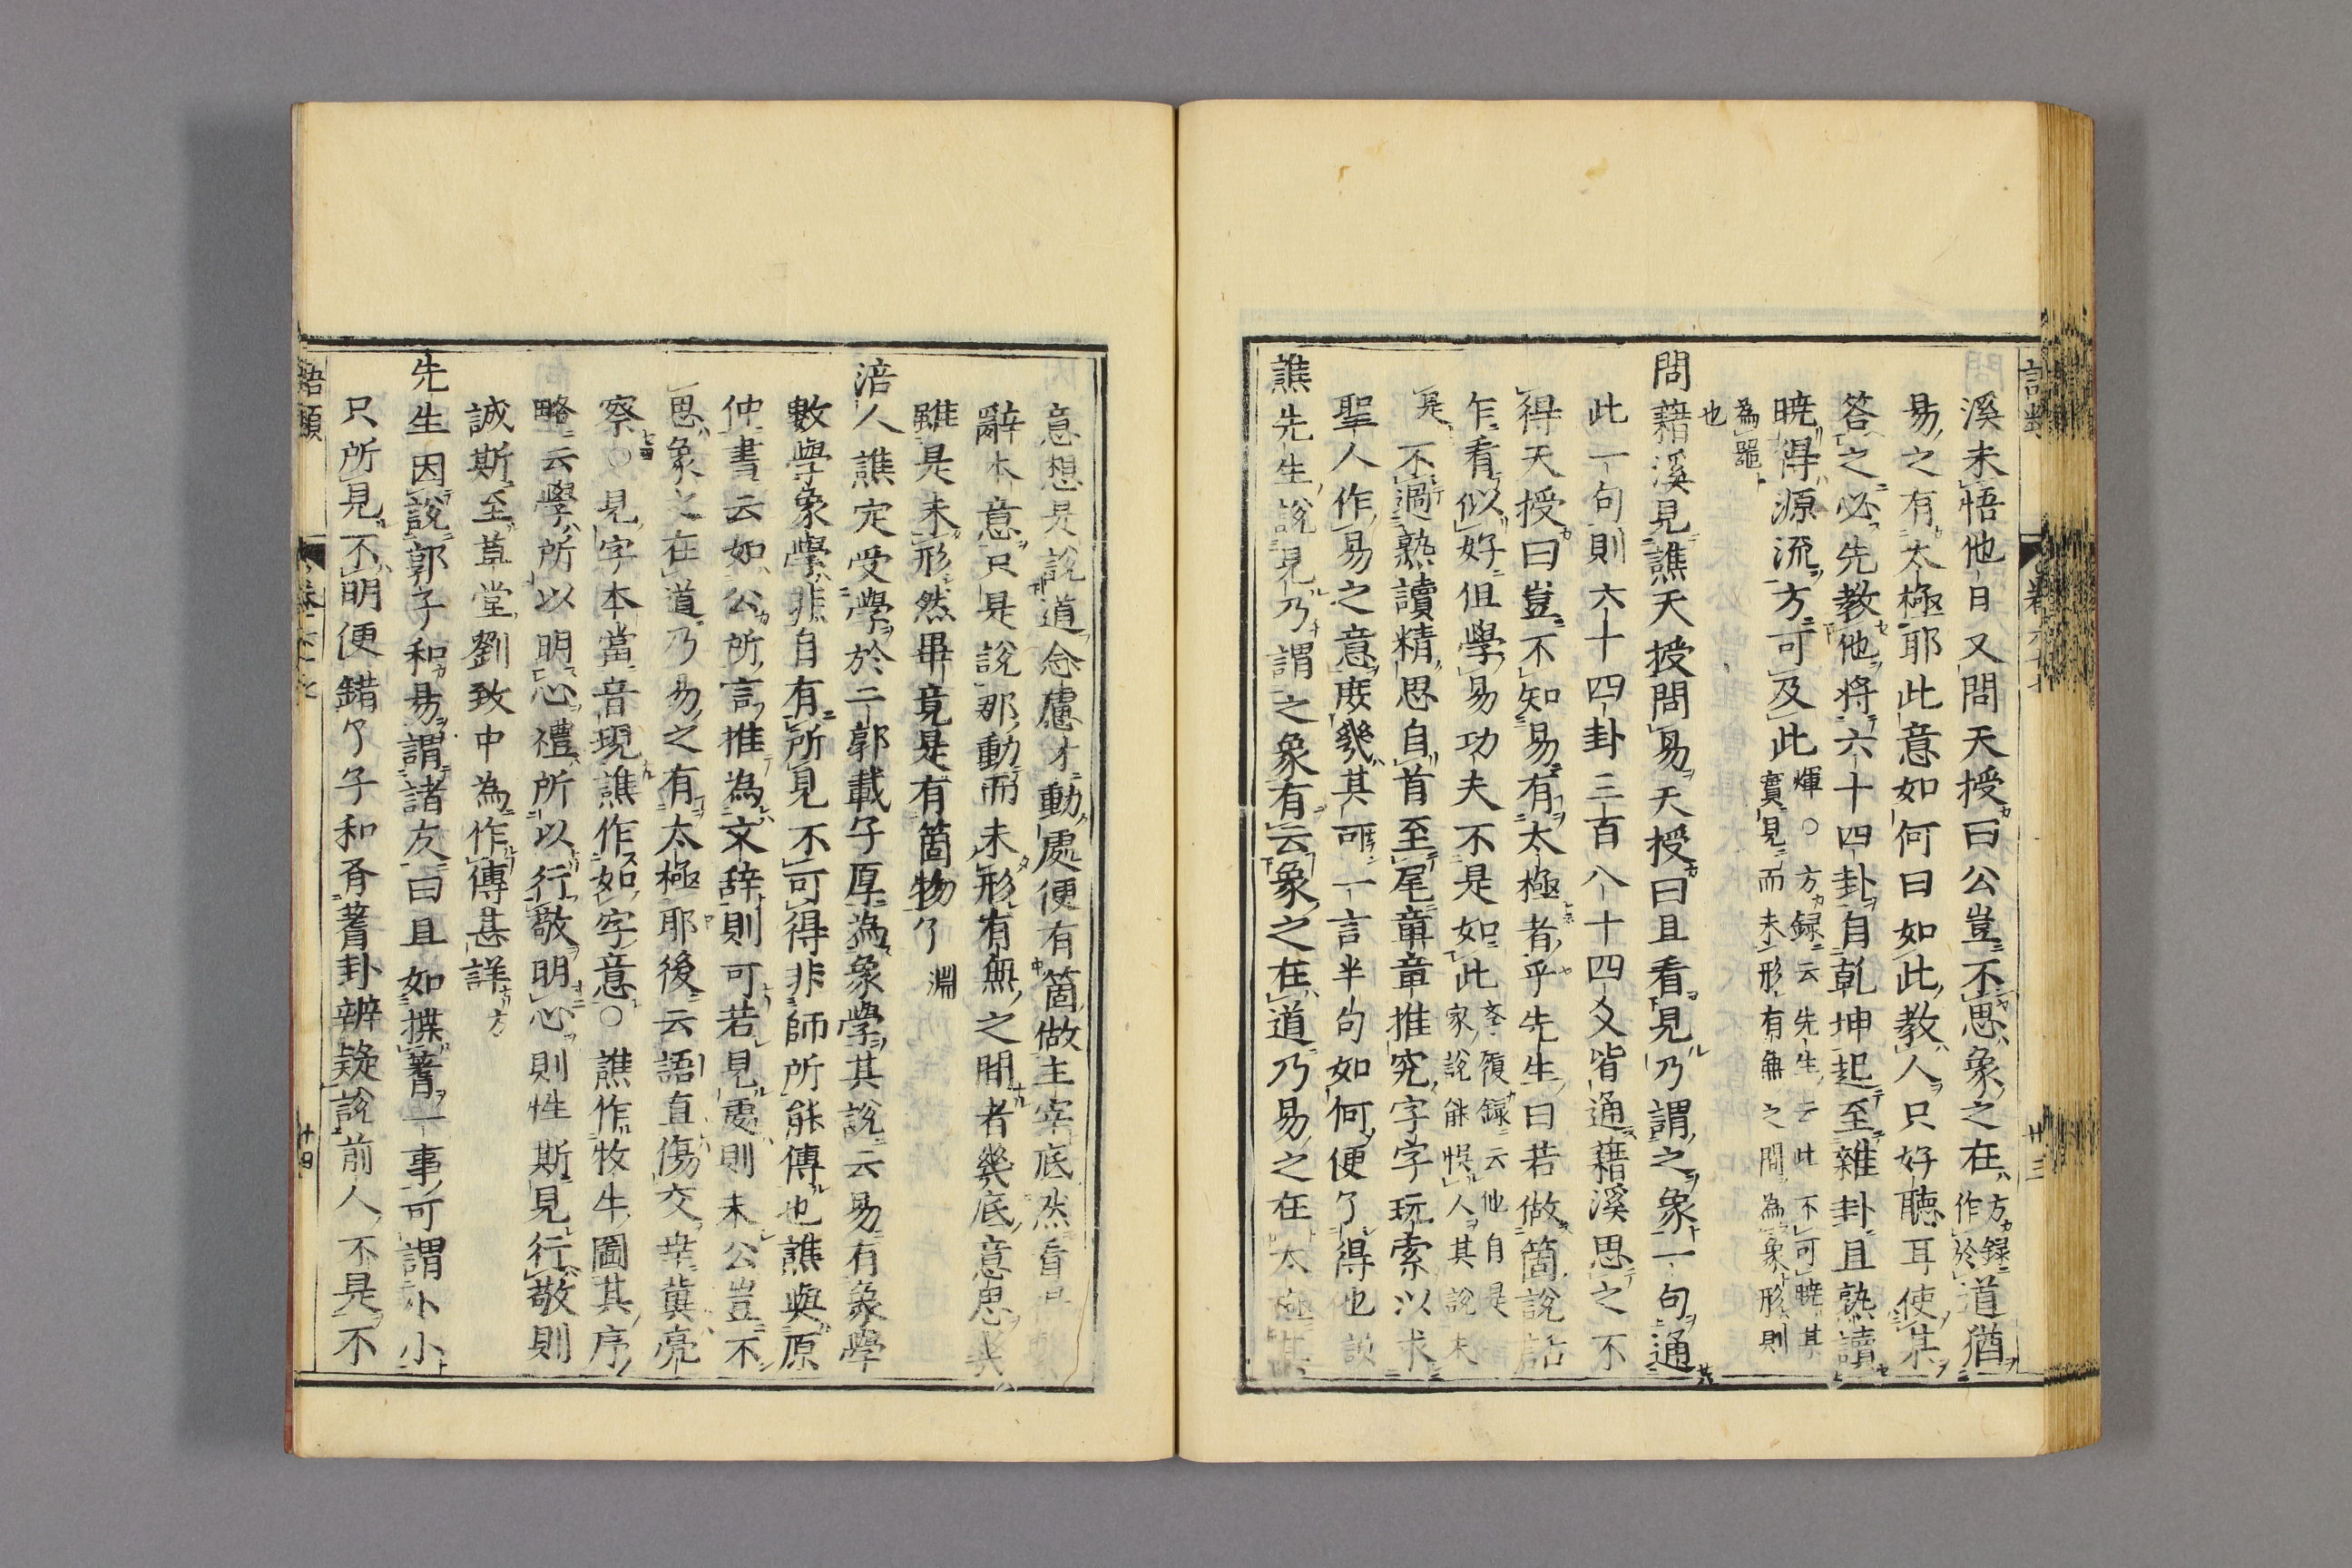 溪未悟他日又問天授曰公豈不思象之在方録作於道猶
易之有太極耶此意如何曰如此教人只好聽耳使某
答之必先教他将六十四卦自乾坤起至雜卦且熟讀
暁得源流方可及此煇○方録云先生云此不可暁其實見而未形有無之間為象形則
為噐也
問藉溪見譙天授問易天授曰且看見乃謂之象一句通
此一句則六十四卦三百八十四爻皆通藉溪思之不
得天授曰豈不知易有太極者乎先生曰若做箇說話
乍看似好但學易功夫不是如此李履録云他自是家說能悞人其說未
是不過熟讀精思自首至尾章章推究字字玩索以求
聖人作易之意庶幾其可一言半句如何便了得也謨
譙先生說見乃謂之象有云象之在道乃易之在太極其
意想是說道念慮才動處便有箇做主宰底然看
辭本意只是說那動而未形有無之間者幾底意思幾
雖是未形然畢竟是有箇物了淵
涪人譙定受學於二郭載子厚為象學其說云易有象學
數學象學非自有所見不可得非師所能傳也譙與原
仲書云如公所言推為文辞則可若見處則未公豈不
思象之在道乃易之有太極耶後云語直傷交幸冀亮
察○見字本當音現譙作如字意○譙作牧牛圖其序
略云學所以明心禮所以行敬明心則性斯見行敬則
誠斯至草堂劉致中為作傳甚詳方
先生因說郭子和易謂諸友曰且如揲蓍一事可謂小小
只所見不明便錯了子和有蓍卦辨疑說前人不是不
語類 卷六十七 十四